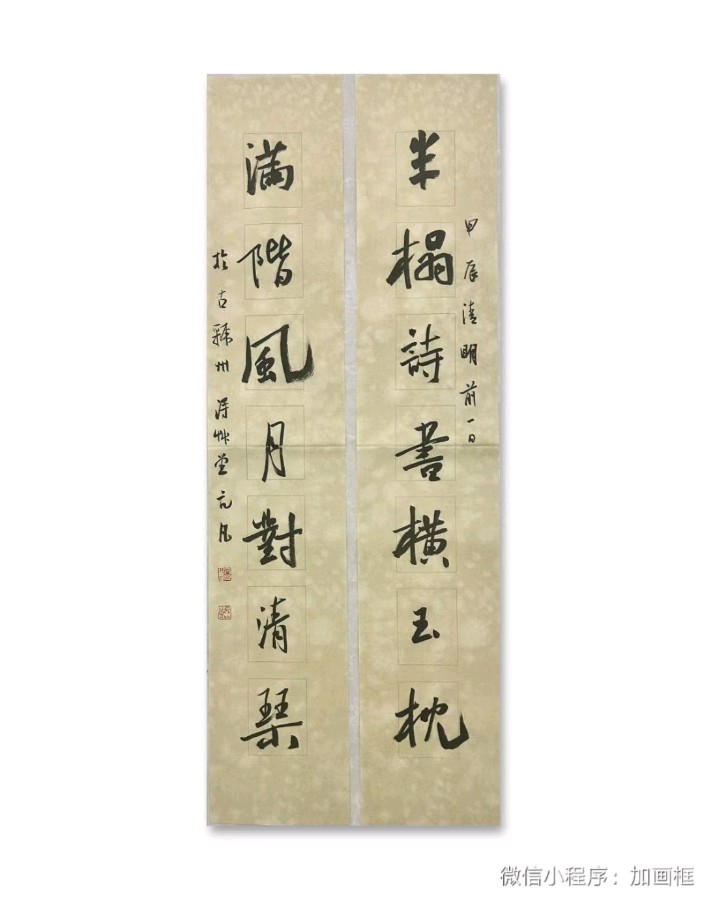 半榻詩書橫玉枕
甲辰清明前一日
滿階風月對清琴
於古穌州得艸堂亮凡
微信小程序：加画框